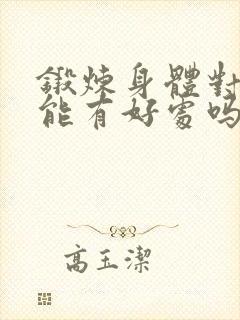 鍛煉身體對
能有好處嗎
高玉潔